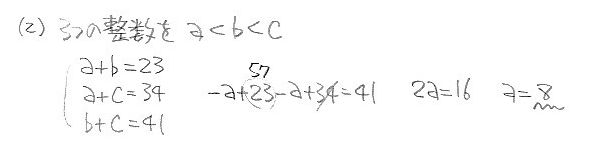 (2) 3つの整数を a<b<c
a+b=23
a+c=34  -a+23-a+34=41  2a=16  a=8
57
b+c=41